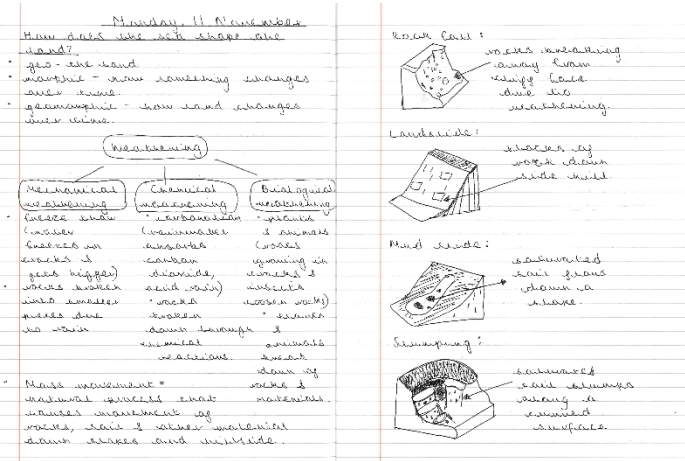 Monday, 11 November
How does the sea shape the
land?
• geo - the land
• morphic - how something changes
over time.
• geomorphic - how land changes
over time.
Weathering
Mechanical
weathering
• freeze thaw
(water
freezes in
cracks &
gets bigger)
• rocks broken
into smaller
pieces due
to rain
Chemical
weathering
• carbonation
(rainwater
absorbs
carbon
dioxide,
acid rain)
• rocks
broken
down through
chemical
reactions.
Biological
weathering
• plants
& animals
(roots
growing in
cracks &
insects
loosen rocks)
&
animals
break
down of
rocks &
materials.
• Mass movement =
natural process that
causes movement of
rocks, soil & other material
down slopes and hillside.
Rock fall:
rocks breaking
away from
cliff face
due to
weathering.
Landslide:
blocks of
rock down
side hill
Mud slide:
saturated
soil flows
down a
slope.
Slumping:
saturated
soil slumps
along a
curved
surface.